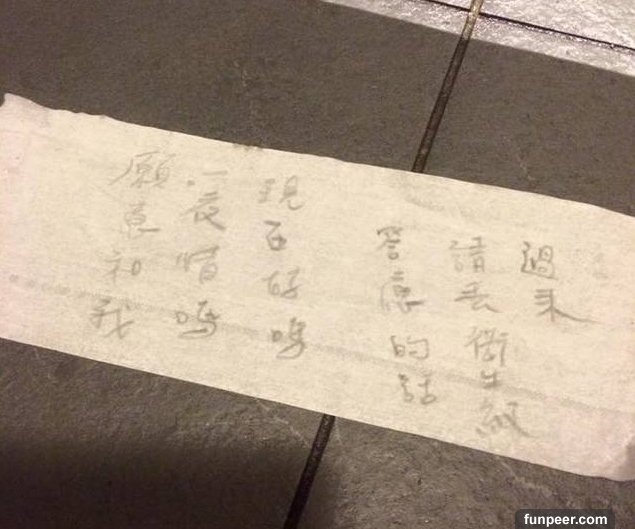 願意和我
一夜情嗎
現在好嗎
答應的話
請丟衛生紙
過來
funpeer.com